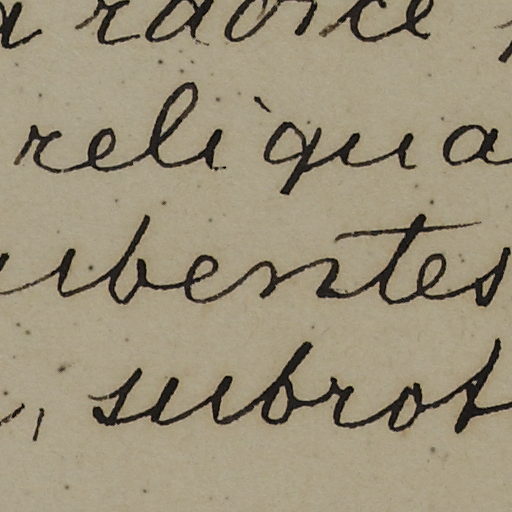 a radice
reliqua
ubentes
, subrot